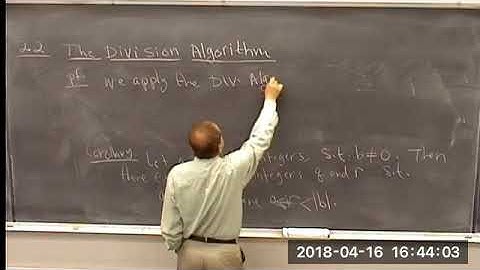 2.2 The Division Algorithm
pf: We apply the Div. Alg
Corollary Let integers, s.t. b≠0. Then
there integers q and r s.t.
< |b|.
2018-04-16 16:44:03